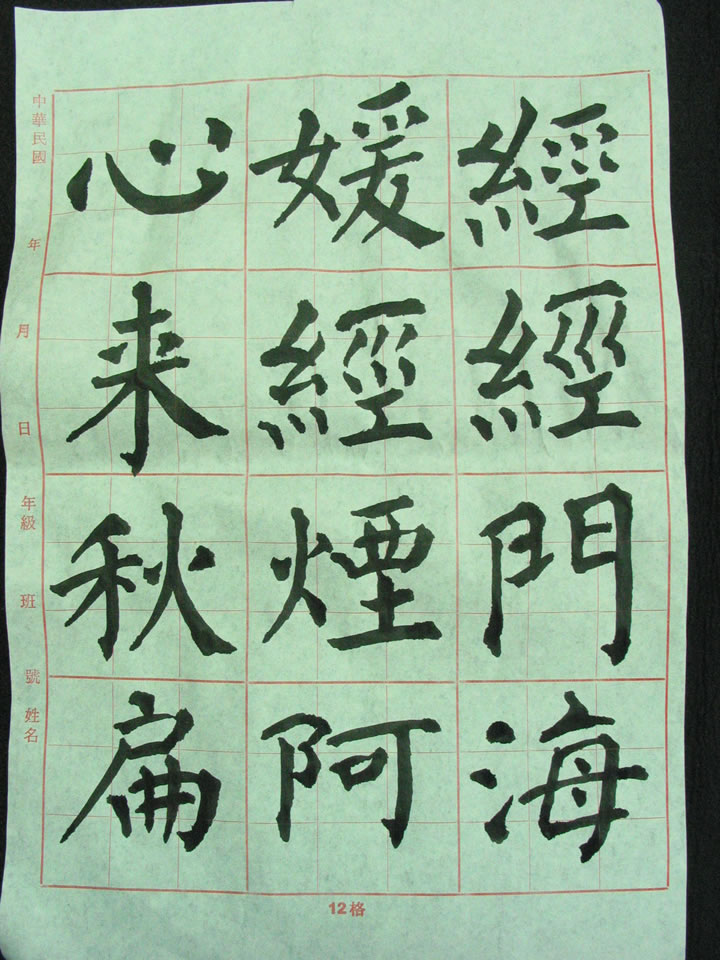 經經門海
媛經煙阿
心来秋扁
中華民國 年 月 日 年級 班 號 姓名
12格